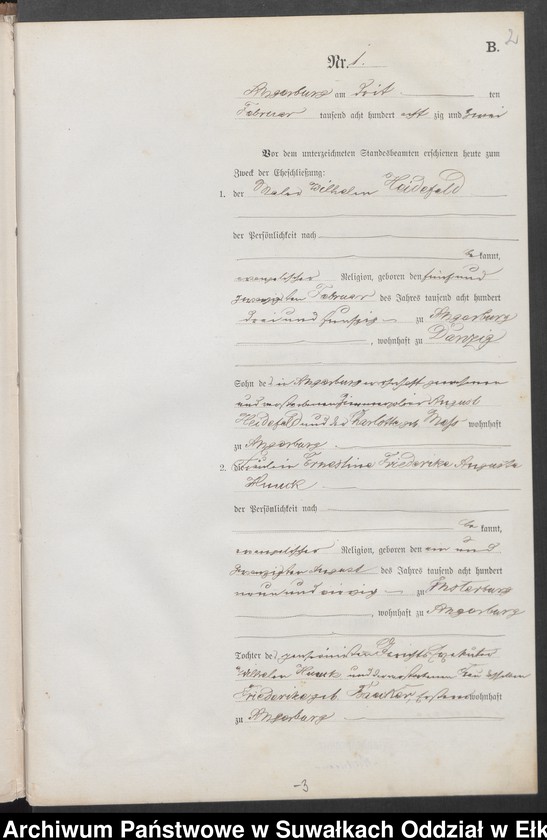 2
B.
Nr. 1.
Angerburg am ten
Februar tausend acht hundert acht zig und zwei
Vor dem unterzeichneten Standesbeamten erschienen heute zum
Zweck der Eheschließung:
1. der Maler Wilhelm Heidefeld
der Persönlichkeit nach
be kannt,
evangelischer Religion, geboren den fünf und
zwanzigsten Februar des Jahres tausend acht hundert
drei und fünfzig zu Angerburg
, wohnhaft zu Danzig
Sohn des in Angerburg wohnhaft gewesenen
und verstorbenen August
Heidefeld und der Charlotte geb. wohnhaft
zu Angerburg
2. Die Fräulein Ernestine Friederike Auguste
der Persönlichkeit nach
be kannt,
evangelischer Religion, geboren den ein und
zwanzigsten August des Jahres tausend acht hundert
neun und vierzig zu Insterburg
, wohnhaft zu Angerburg
Tochter des pensionirten Gerichts
Wilhelm und verstorbenen Frau
Friederike geb. wohnhaft
zu Angerburg
3
Archiwum Państwowe w Suwałkach Oddział w Ełk